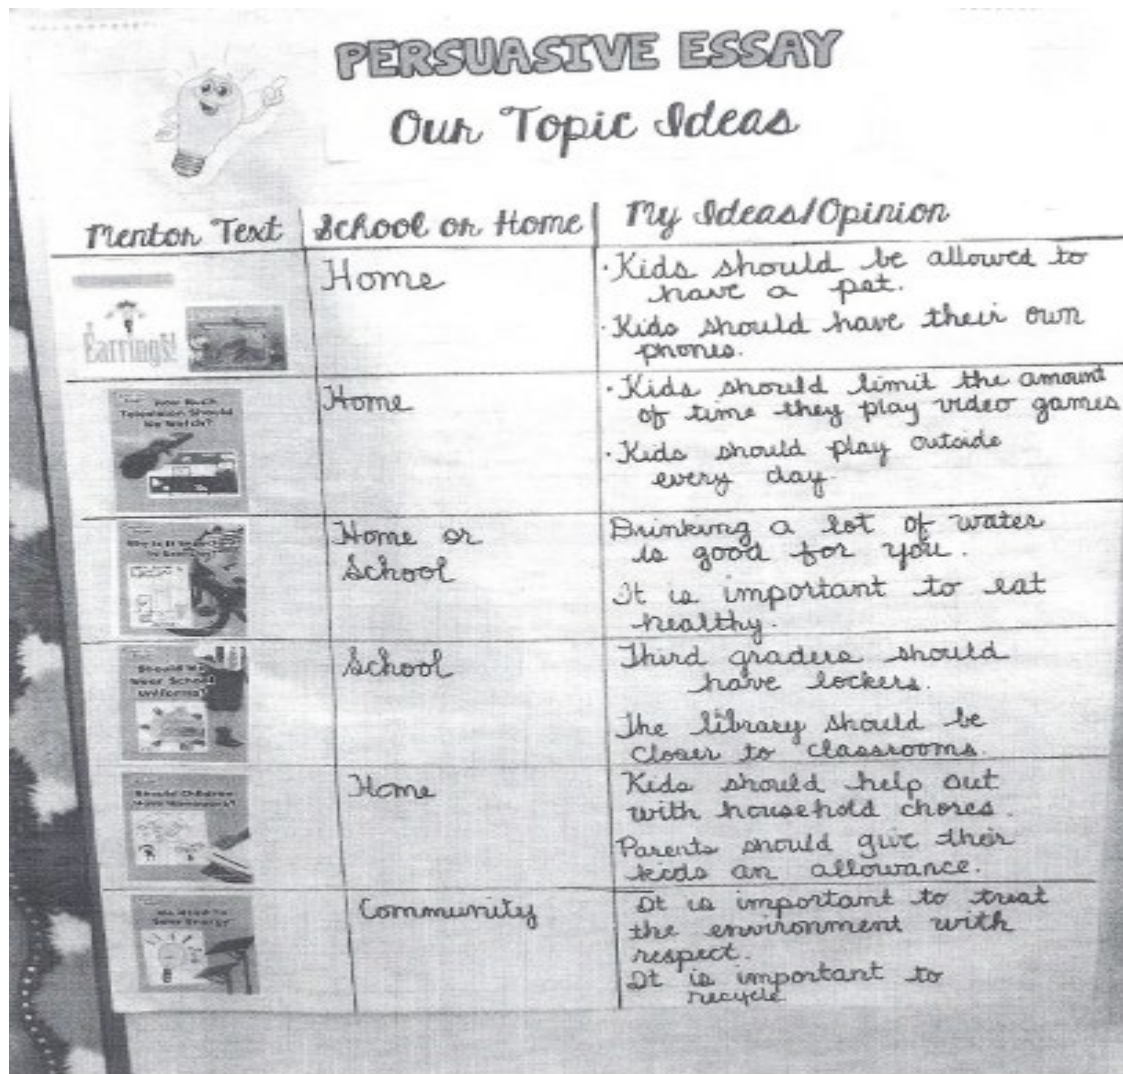 PERSUASIVE ESSAY
Our Topic Ideas
Mentor Text
School or Home
My Ideas/Opinion
Earrings!
Home
· Kids should be allowed to
have a pet.
· Kids should have their own
phones.
How Much
Television Should
We Watch?
Home
· Kids should limit the amount
of time they play video games
· Kids should play outside
every day.
Why Is It
Home or
School
Drinking a lot of water
is good for you.
It is important to eat
healthy.
Should We
Wear School
Uniforms?
School
Third graders should
have lockers.
The library should be
closer to classrooms.
Should Children
Have Homework?
Home
Kids should help out
with household chores.
Parents should give their
kids an allowance.
We Need To
Save Energy
Community
It is important to treat
the environment with
respect.
It is important to
recycle